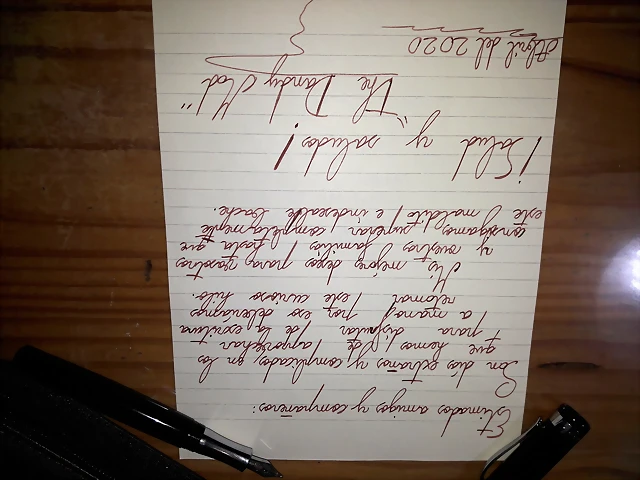 Estimados amigos y compañeros:
Son días extraños y complicados en los
que hemos de aprovechar
para disfrutar de la escritura
a mano, por eso deberíamos
retomar este curioso hilo.
Mis mejores deseos para vosotros
y vuestras familias hasta que
consigamos superar completamente
este maldito e indeseable bache.
¡Salud y saludos!
"The Dandy Mod"
Abril del 2020